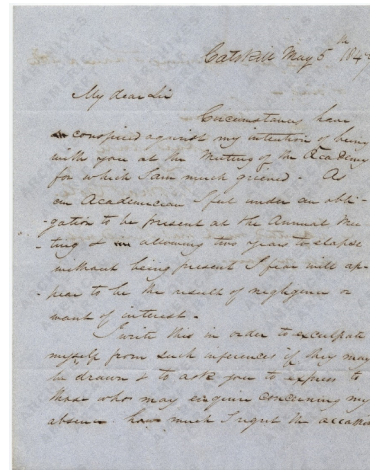 Catskill May 5th 184
My dear Sir
Circumstances have
conspired against my intention of being
with you at the Meeting of the Academy
for which I am much grieved. As
an Academician I feel under an obli-
-gation to be present at the Annual Mee-
-ting & in allowing two years to elapse
without being present I fear will ap-
-pear to be the result of negligence or
want of interest.
I write this in order to exculpate
myself from such inferences if they may
be drawn & to ask you to express to
those who may enquire concerning my
absence how much I regret the occasion